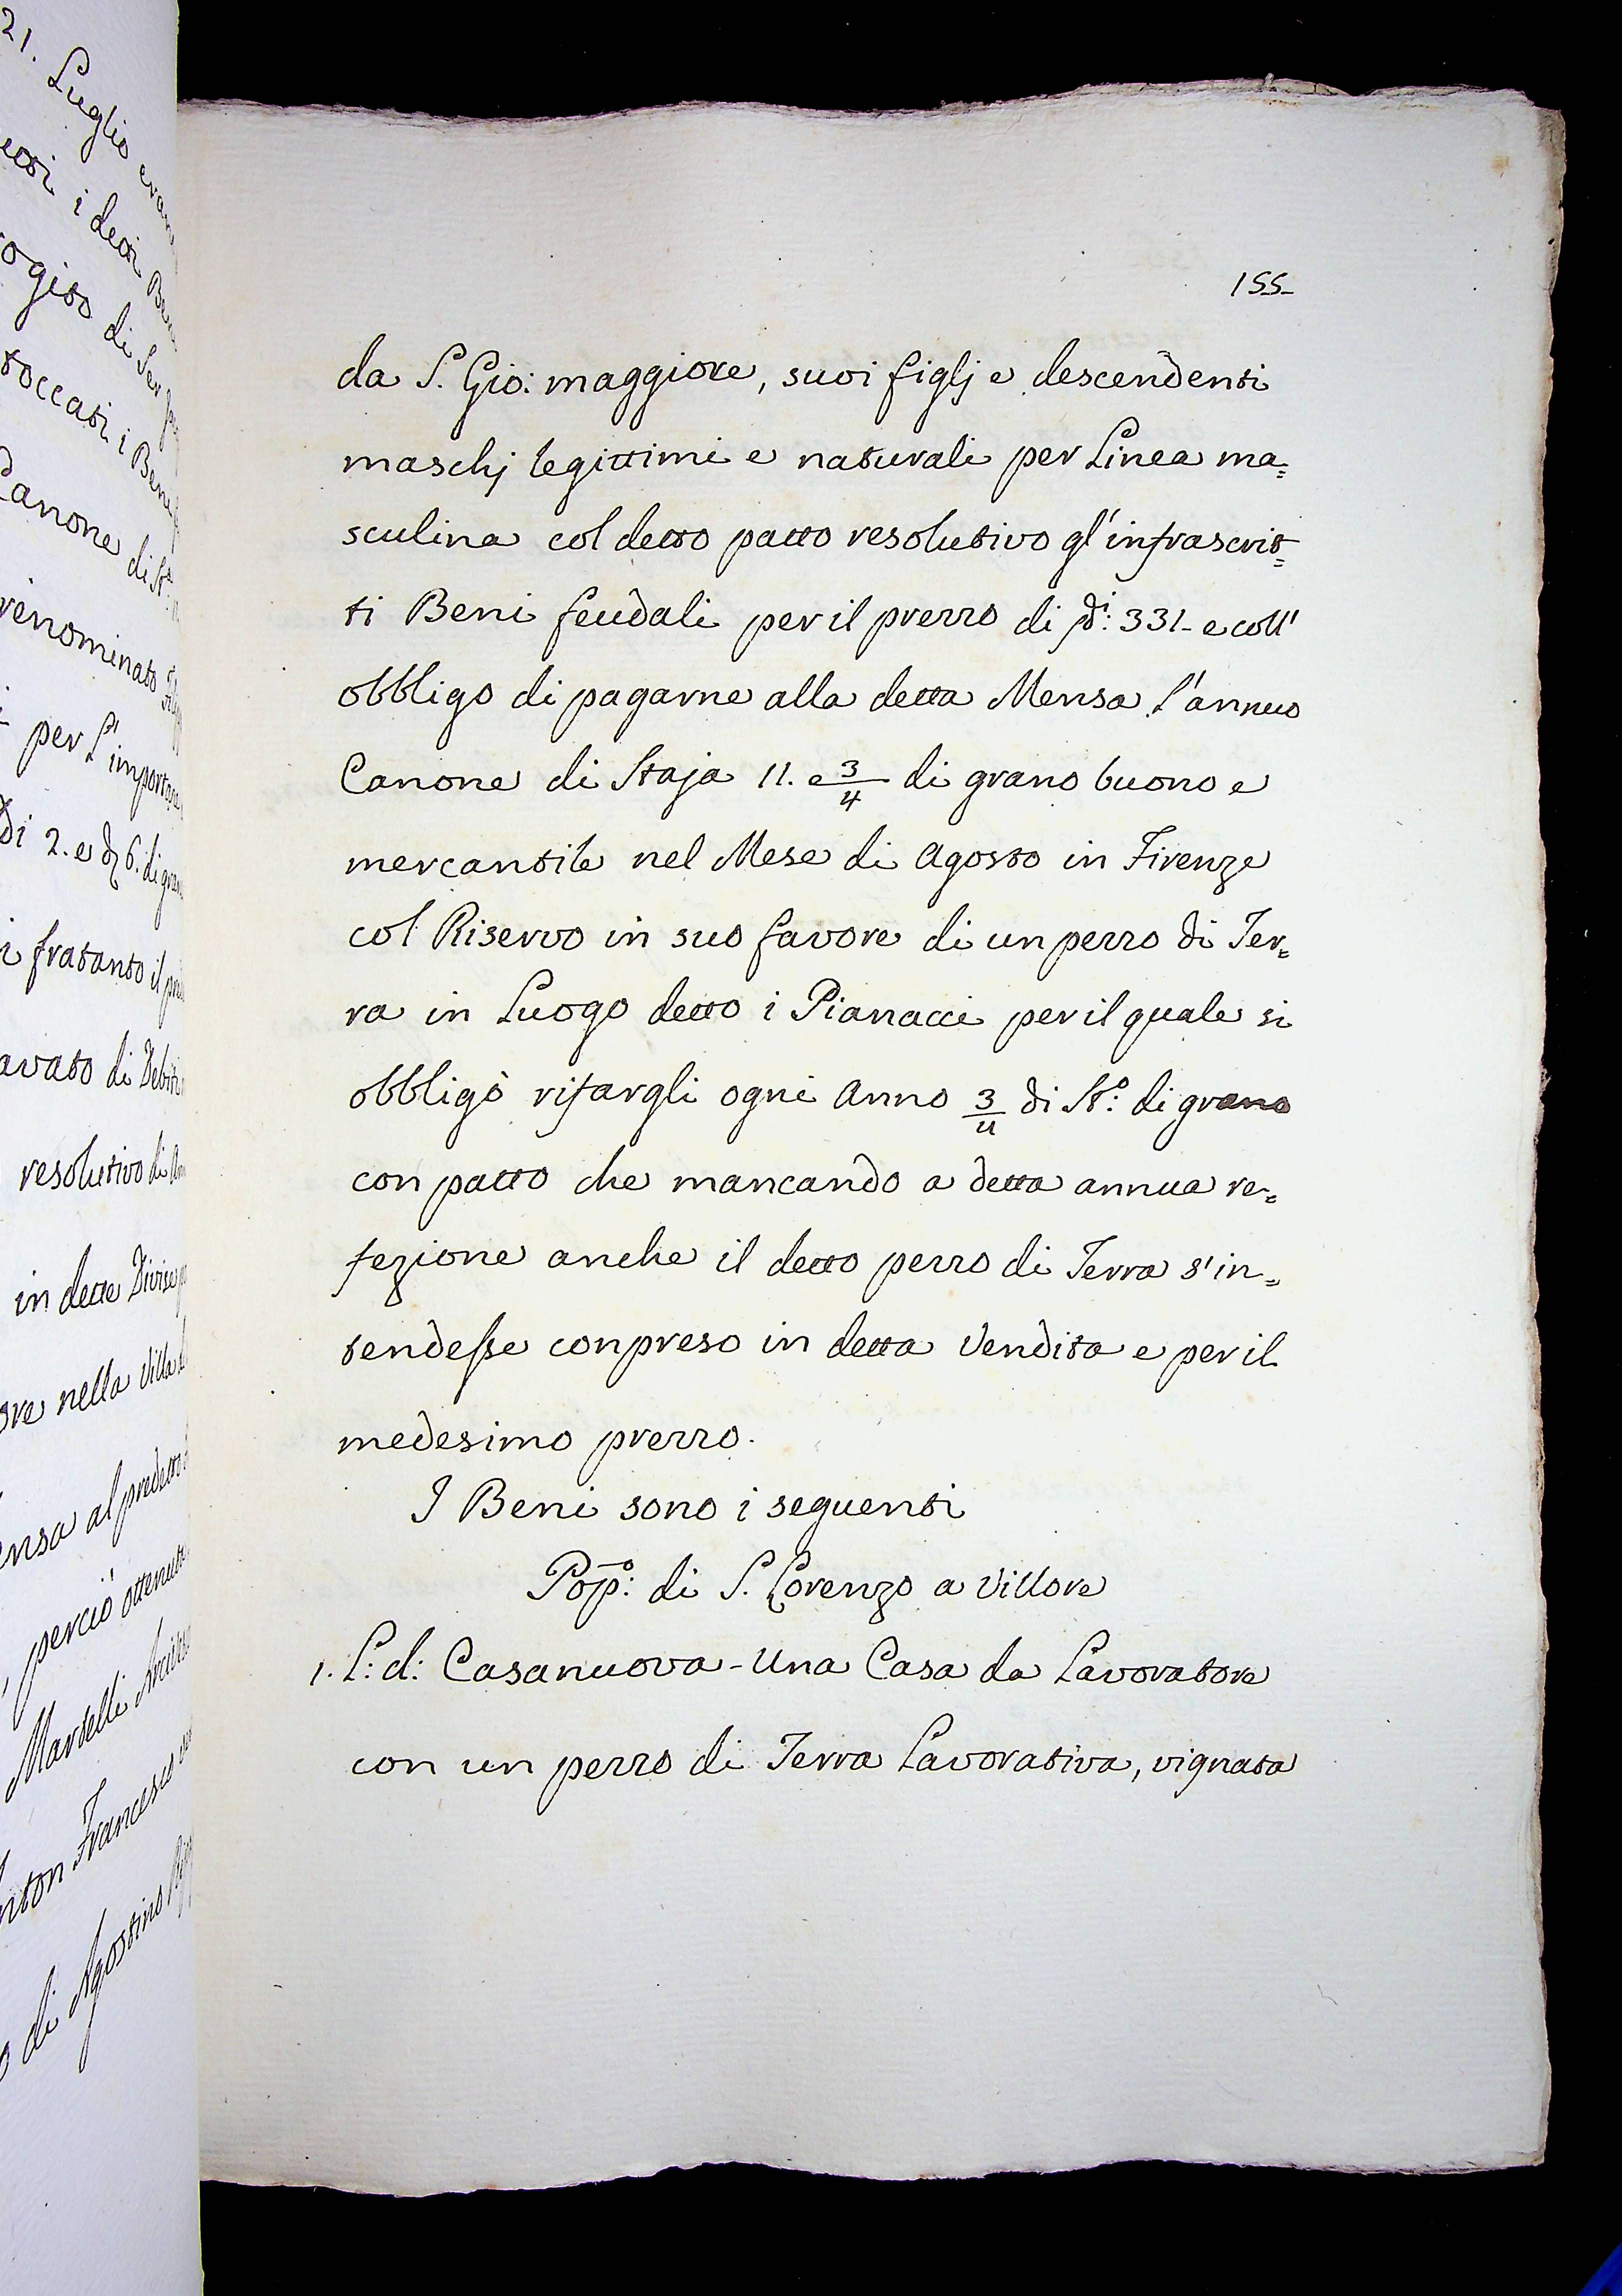 21. Luglio
i detti
rogito di Ser
toccati i Beni
Canone di
renominato
per l'
di 2. e
fratanto il
di
resolutivo di
in dette
nella Villa
al predetto
perciò
Martelli
Francesco
di Agostino
155
da S. Gio: maggiore, suoi figlj e descendenti
maschj legittimi e naturali per Linea ma=
sculina col detto patto resolutivo gl'infrascrit=
ti Beni feudali per il prezzo di 331- e coll'
obbligo di pagarne alla detta Mensa l'annuo
Canone di Staja 11. e 3/4 di grano buono e
mercantile nel Mese di Agosto in Firenze
col Riservo in suo favore di un pezzo di Ter=
ra in Luogo detto i Pianacci per il quale si
obbligò rifargli ogni Anno 3/4 di St:º di grano
con patto che mancando a detta annua re=
fezione anche il detto pezzo di Terra s'in=
tendesse conpreso in detta Vendita e per il
medesimo prezzo.
I Beni sono i seguenti
Pop:º di S. Lorenzo a Villore
1. L: d: Casanuova - Una Casa da Lavoratore
con un pezzo di Terra Lavorativa, vignata